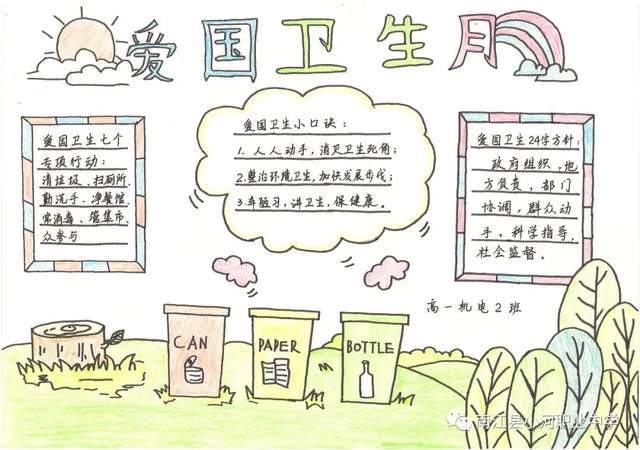 爱国卫生月
爱国卫生七个
专项行动:
清垃圾、扫厕所、
勤洗手、净餐馆、
常消毒、管集市、
众参与
爱国卫生小口诀:
1.人人动手,消灭卫生死角;
2.整治环境卫生,加快发展步伐;
3.弃陋习,讲卫生,保健康。
爱国卫生24字方针:
政府组织,地
方负责,部门
协调,群众动
手,科学指导,
社会监督。
高一机电2班
CAN
PAPER
BOTTLE
南江县小河职业中学